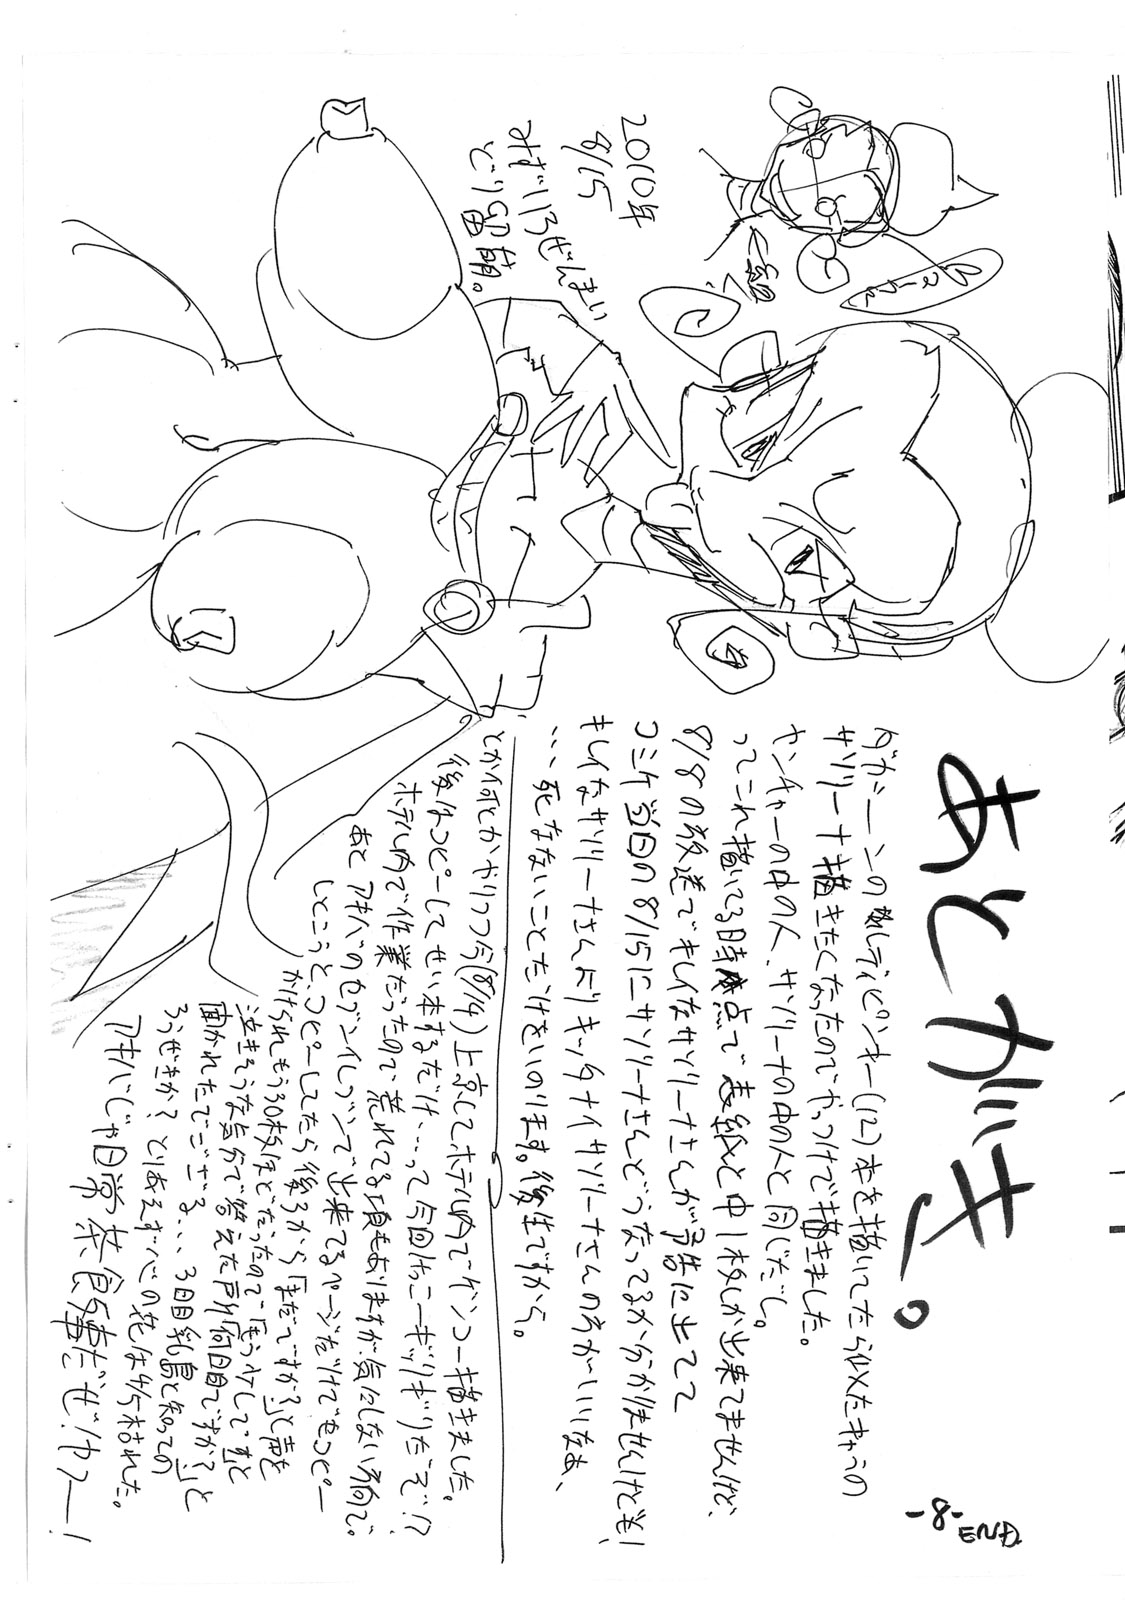 あとがき。
ダカーンの敵レディピンキー(12)本を描いてたら似たキャラの
サソリーナ描きたくなったのでやっつけで描きました。
ヤンチャーの中の人、サソリーナの中の人と同じだし。
ってこれ描いてる時点で表紙と中1枚しか出来てませんけど、
8/8の放送でキレイなサソリーナさんが予告に出てて
コミケ当日の8/15にサソリーナさんどうなってるか分かりませんけども!
キレイなサソリーナさんよりキッタナイサソリーナさんのるがいいなぁ、
…死なないことだけをいのります。後生ですから。
とか何とかやりつつ今(8/14)上京してホテル内でゲンコー描きました。
後はコピーしてせい本するだけ…って今回けっこーギッリギリだぞ!?
ホテル内で作業だったので荒れてる頃もありますが気にしない方向で。
あと アキバのセブンイレブンで出来てるページだけでもコピー
しとこうと、コピーしてたら後ろから「まだですか?」と声を
かけられもう30枚ほどだったので「もう少しです」と
泣きそうな気分で答えた所「何日目ですか?」と
聞かれたでござる、、、3日目乳島と知っての
ろうぜきか? とりあえず心の花は少ら枯れた。
アキバじゃ日常茶飯事だぜ!ヤフー!
2010年
8/15
みずしろぜんまい
どり留萌。
-8-
END